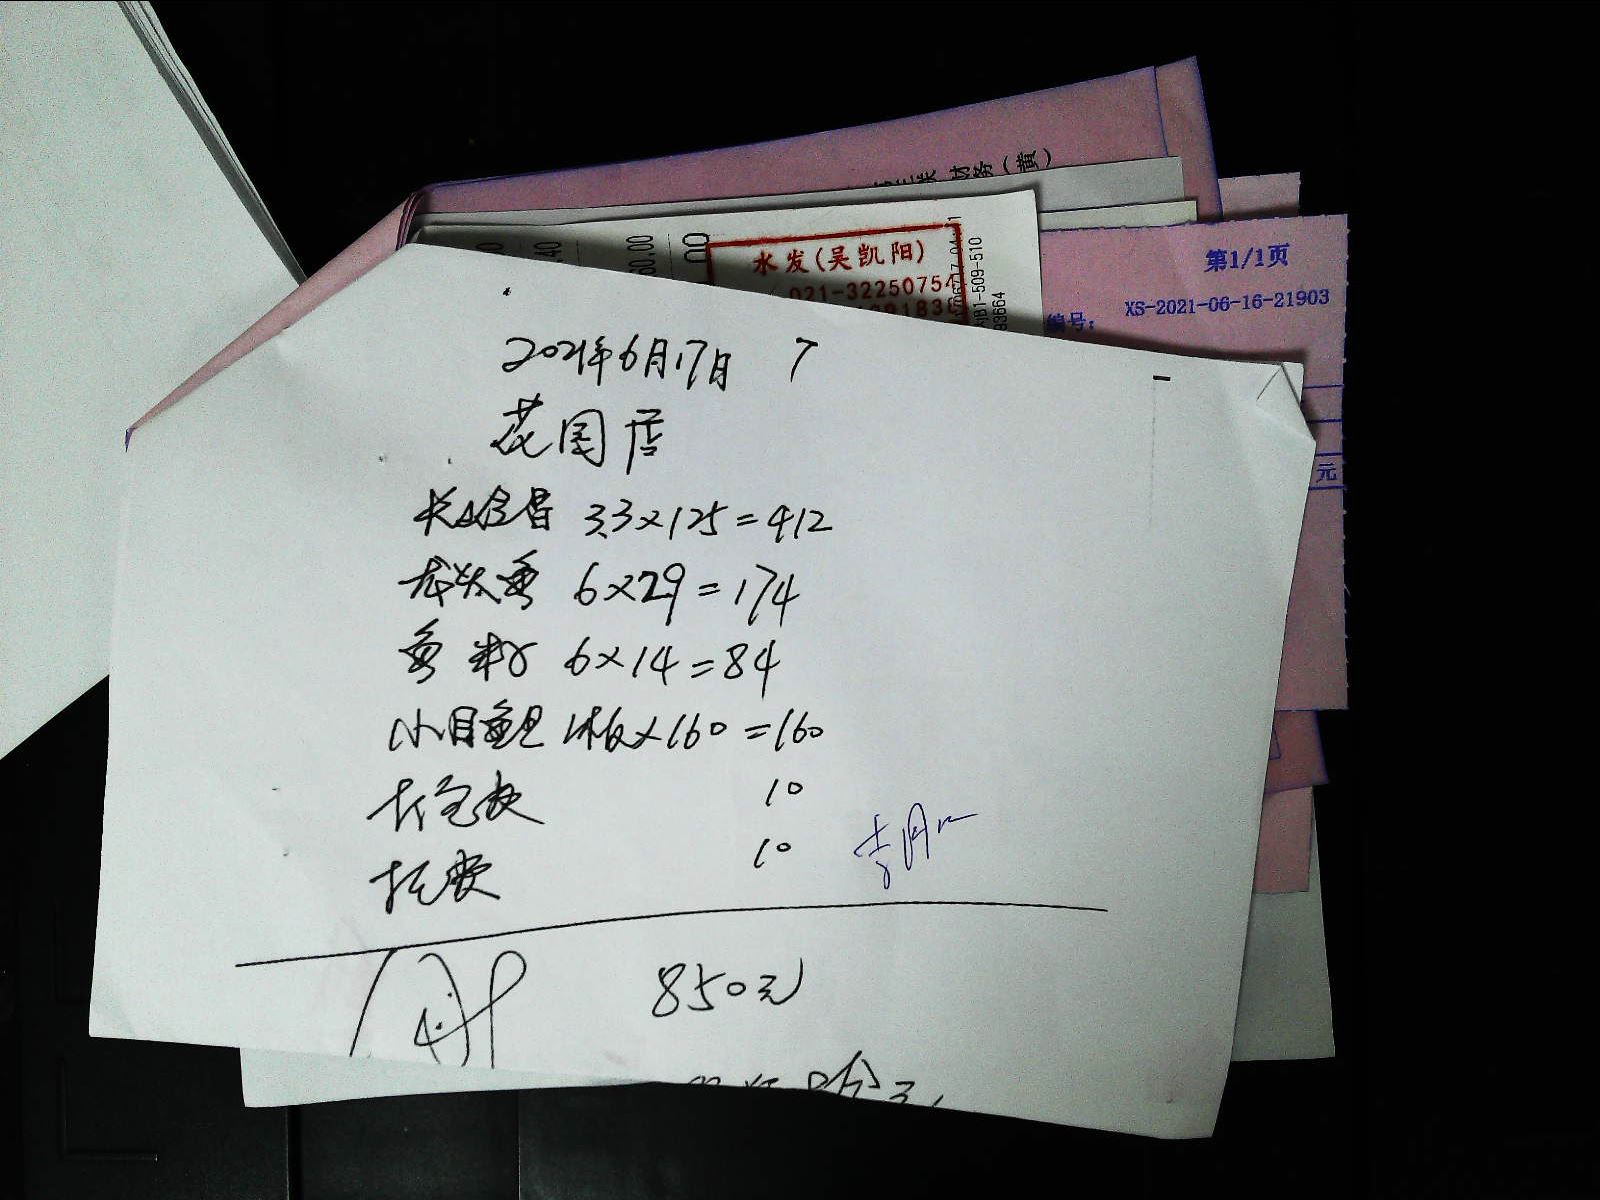 财务(黄)
60.00
水发(吴凯阳)
021-3225075
509-510
93664
第1/1页
编号: XS-2021-06-16-21903
元
2021年6月17日
花园店
3.3×125=412
龙头鱼 6×29=174
鱼籽 6×14=84
小目鱼 1板×160=160
打包费 10
托费 10
850元